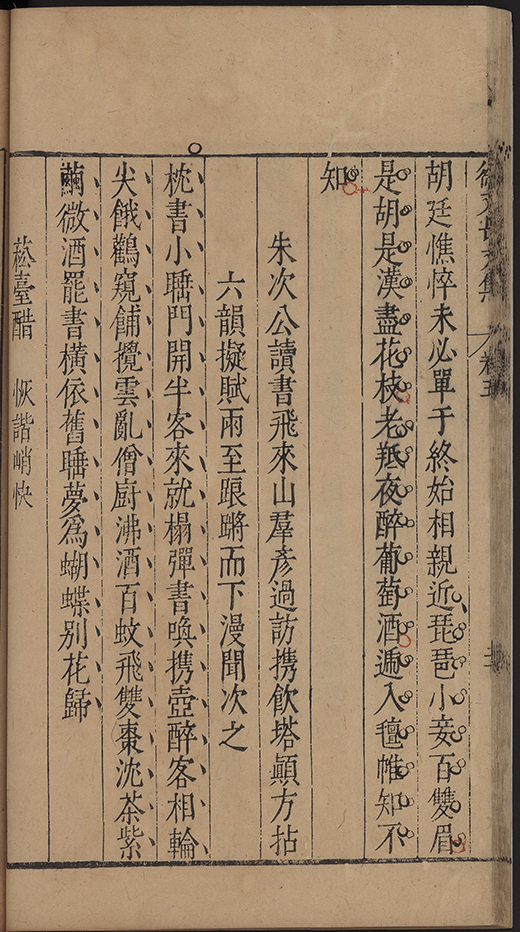 徐文長文集 卷五
胡廷憔悴未必單于終始相親近琵琶小妾百雙眉
是胡是漢盡花枝老羝夜醉葡萄酒遍入氊帷知不
知
朱次公讀書飛來山羣彥過訪携飲塔顛方拈
六韻擬賦雨至踉蹡而下漫聞次之
枕書小睡門開半客來就榻彈書喚携壺醉客相輪
尖餓鸛窺餔攪雲亂僧廚沸酒百蚊飛雙棗沈茶紫
繭微酒罷書橫依舊睡夢爲蝴蝶別花歸
菘臺醋 恢諧峭快